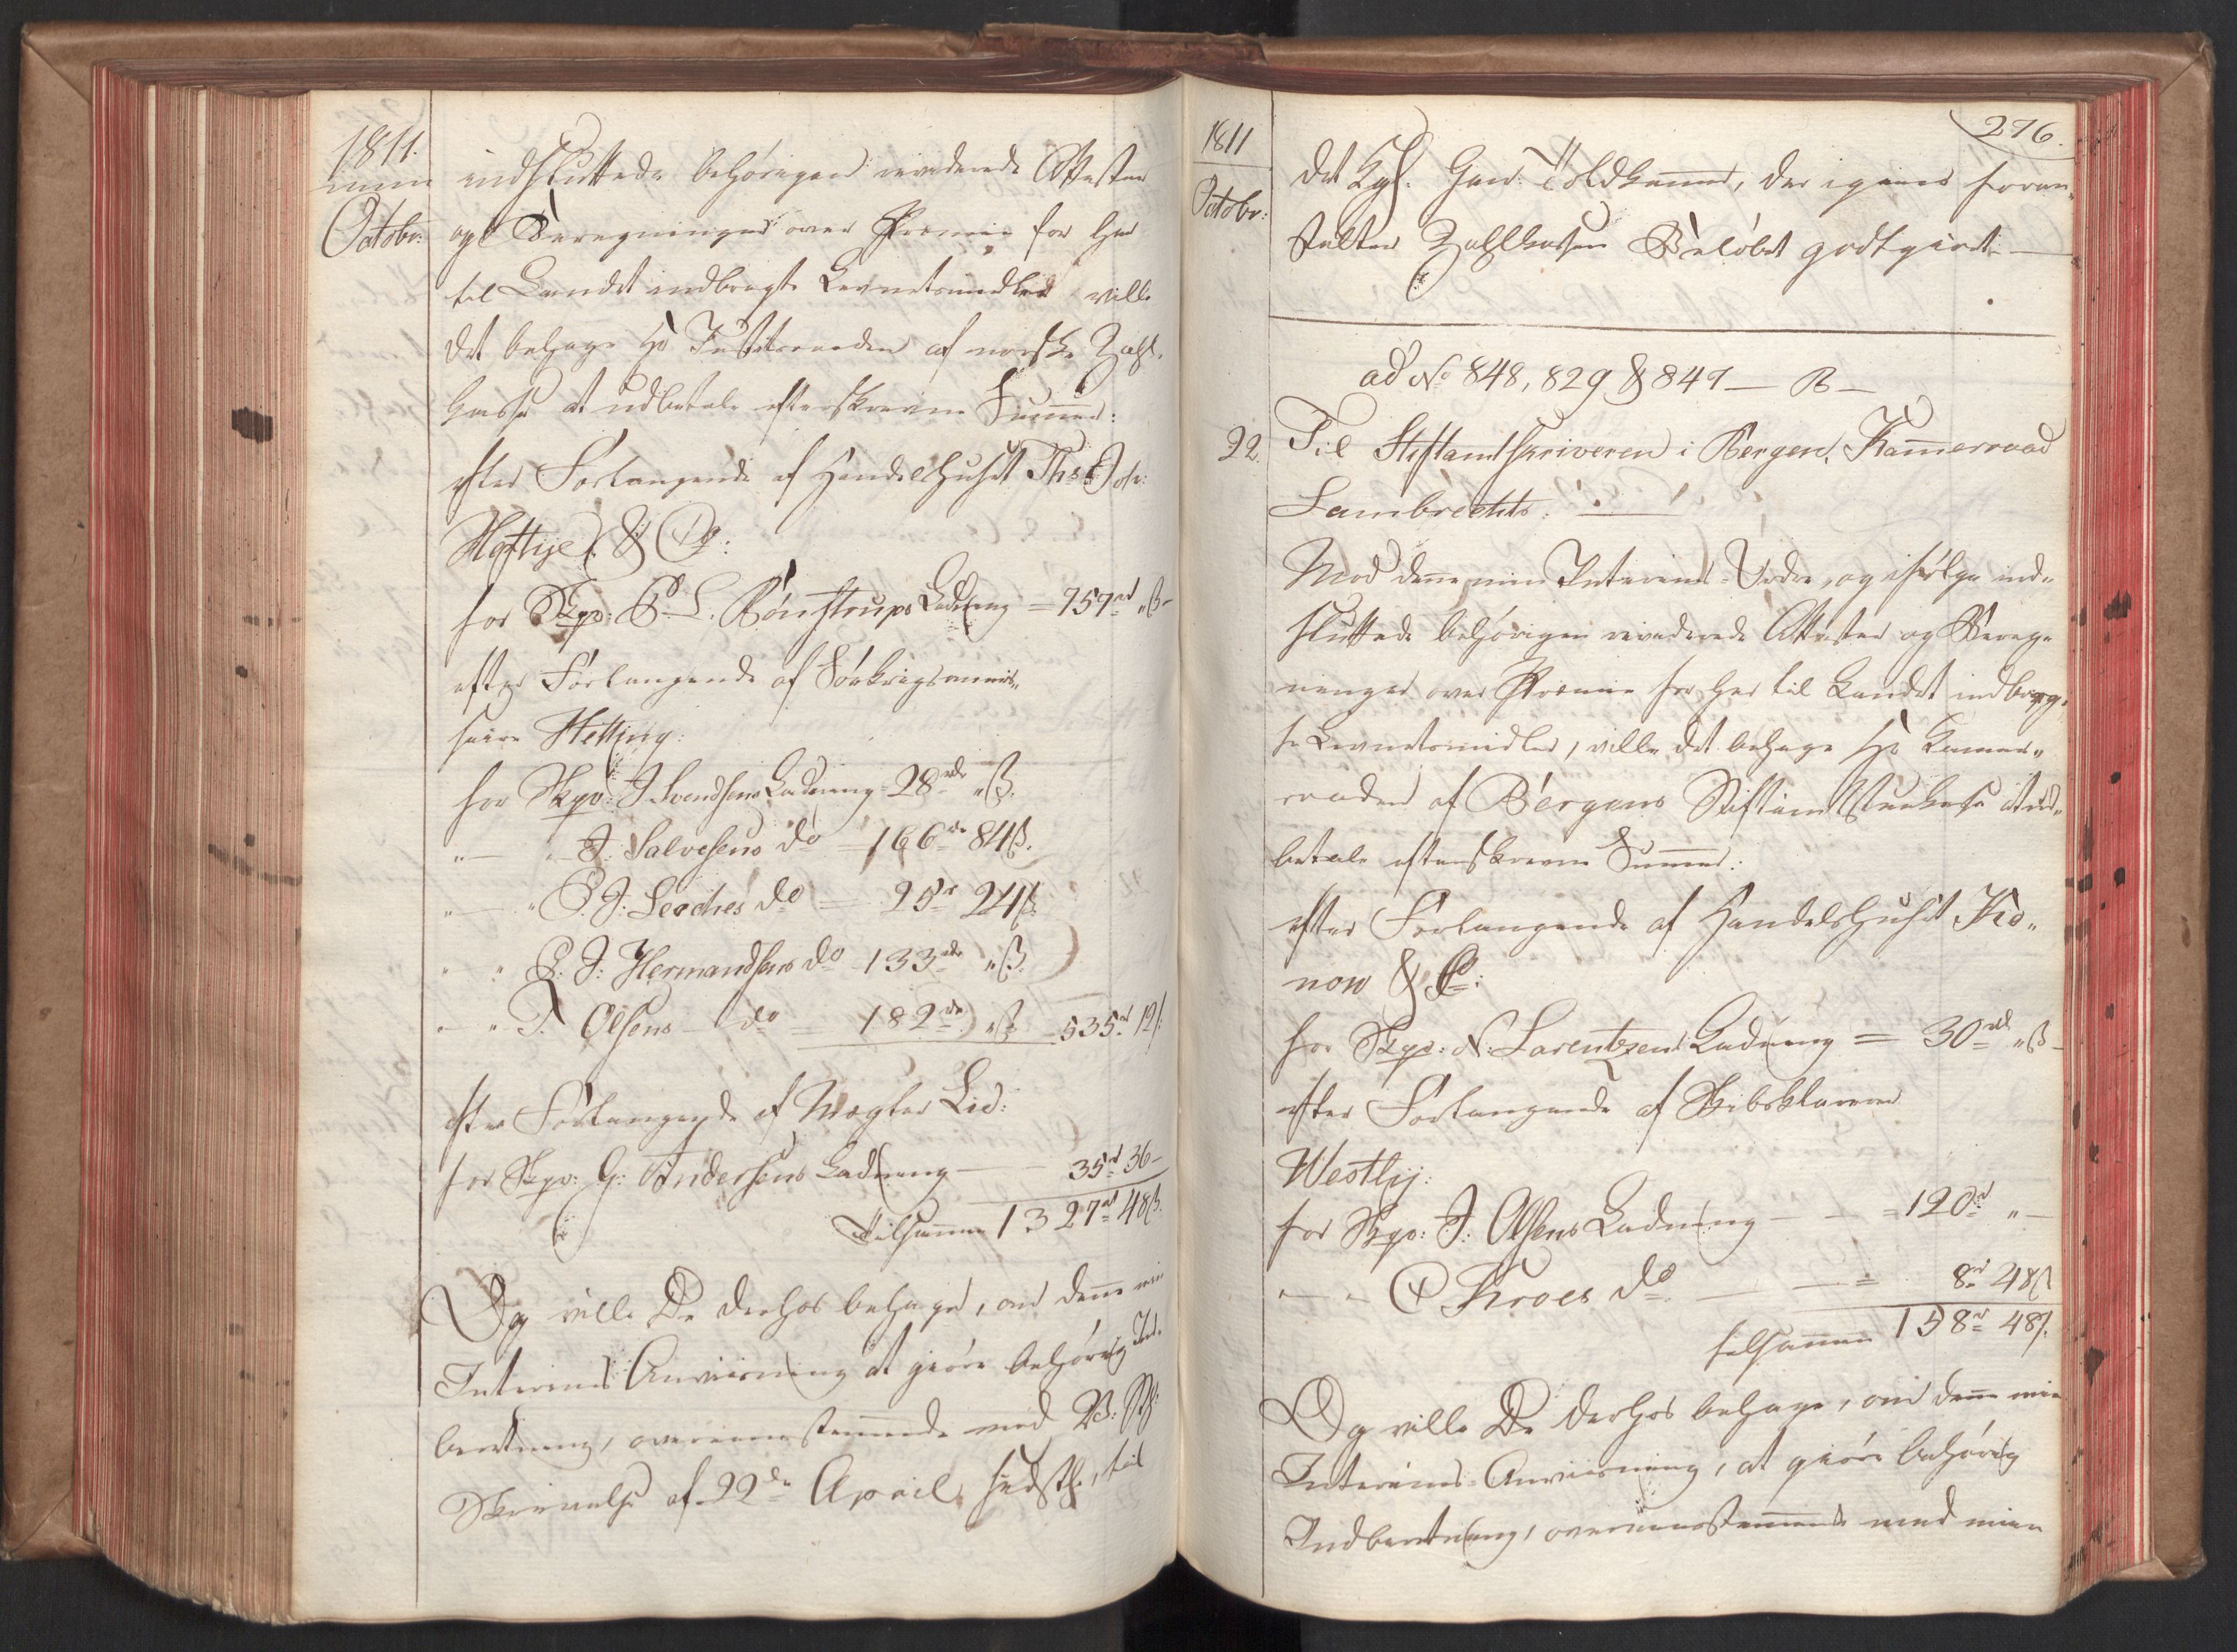 1811.
October
indsluttede behörigen reviderede Attester
og Beregninger over Præmie for her
til Landet indbragte Levnetsmidler ville
det behage Hr Justitsraaden af norske Zahl-
Cassa at udbetale efterskrevne Summer:
efter Forlangende af Handelshuset Ths: Joh:
Heftye & :
for Skpr: P. L. Rönstrups Ladning = 757 rd „ ß
efter Forlangende af Söekrigscommis„
saire Hetting:
for Skpr: J. Svendsens Ladning = 28 rdr „ ß.
„ — „ J. Salvesens do 166 rdr 84 ß.
„ — „ P. J. Leoches do = 25 r 24 ß
„ „ P. J. Hermandsens do 133 rdr „ ß.
„ „ T. Olsens do = 182 rdr „ ß 535 rd 12 ß
efter Forlangende af Mægler Lie:
for Skpr: G: Andersens Ladning — 35 rd 36 –
tilsammen 1327 rd 48 ß.
Og ville De derhos behage, om denne min
Interims Anviisning at giöre behörig Ind-
beretning, overeensstemmende med
Skrivelse af 22de April sidstl:, til
1811
Octobr:
276.
det Kgl. Gen: Toldkammer, der igien foran„
stalter Zahlkassen Belöbet godtgiort. —
ad No 848, 829 & 847 — B —
22. Til Stiftamtskriveren i Bergen, Kammerraad
Lambrechts:
Mod denne min Interims-Ordre, og ifölge ind„
sluttede behörigen reviderede Attester og Bereg„
ninger over Præmie for her til Landet indbrag„
te Levnetsmidler, ville det behage Hr Kammer„
raaden af Bergens Stiftamtstuekasse at ud„
betale efterskrevne Summer:
efter Forlangende af Handelshuset Ko„
now & Co:
for Skpr: N. Larentzens Ladning = 30 rdl „ ß —
efter Forlangende af Skibsklarerer
Westby:
for Skpr: J. Olsens Ladning — — = 120 rd „ —
„ — „ Kroes do — — = 8 rd 48 ß
tilsammen 158 rd 48 ß.
Og ville De derhos behage, om denne min
Interims-Anviisning, at giöre behörig
Indberetning, overeensstemmende med min